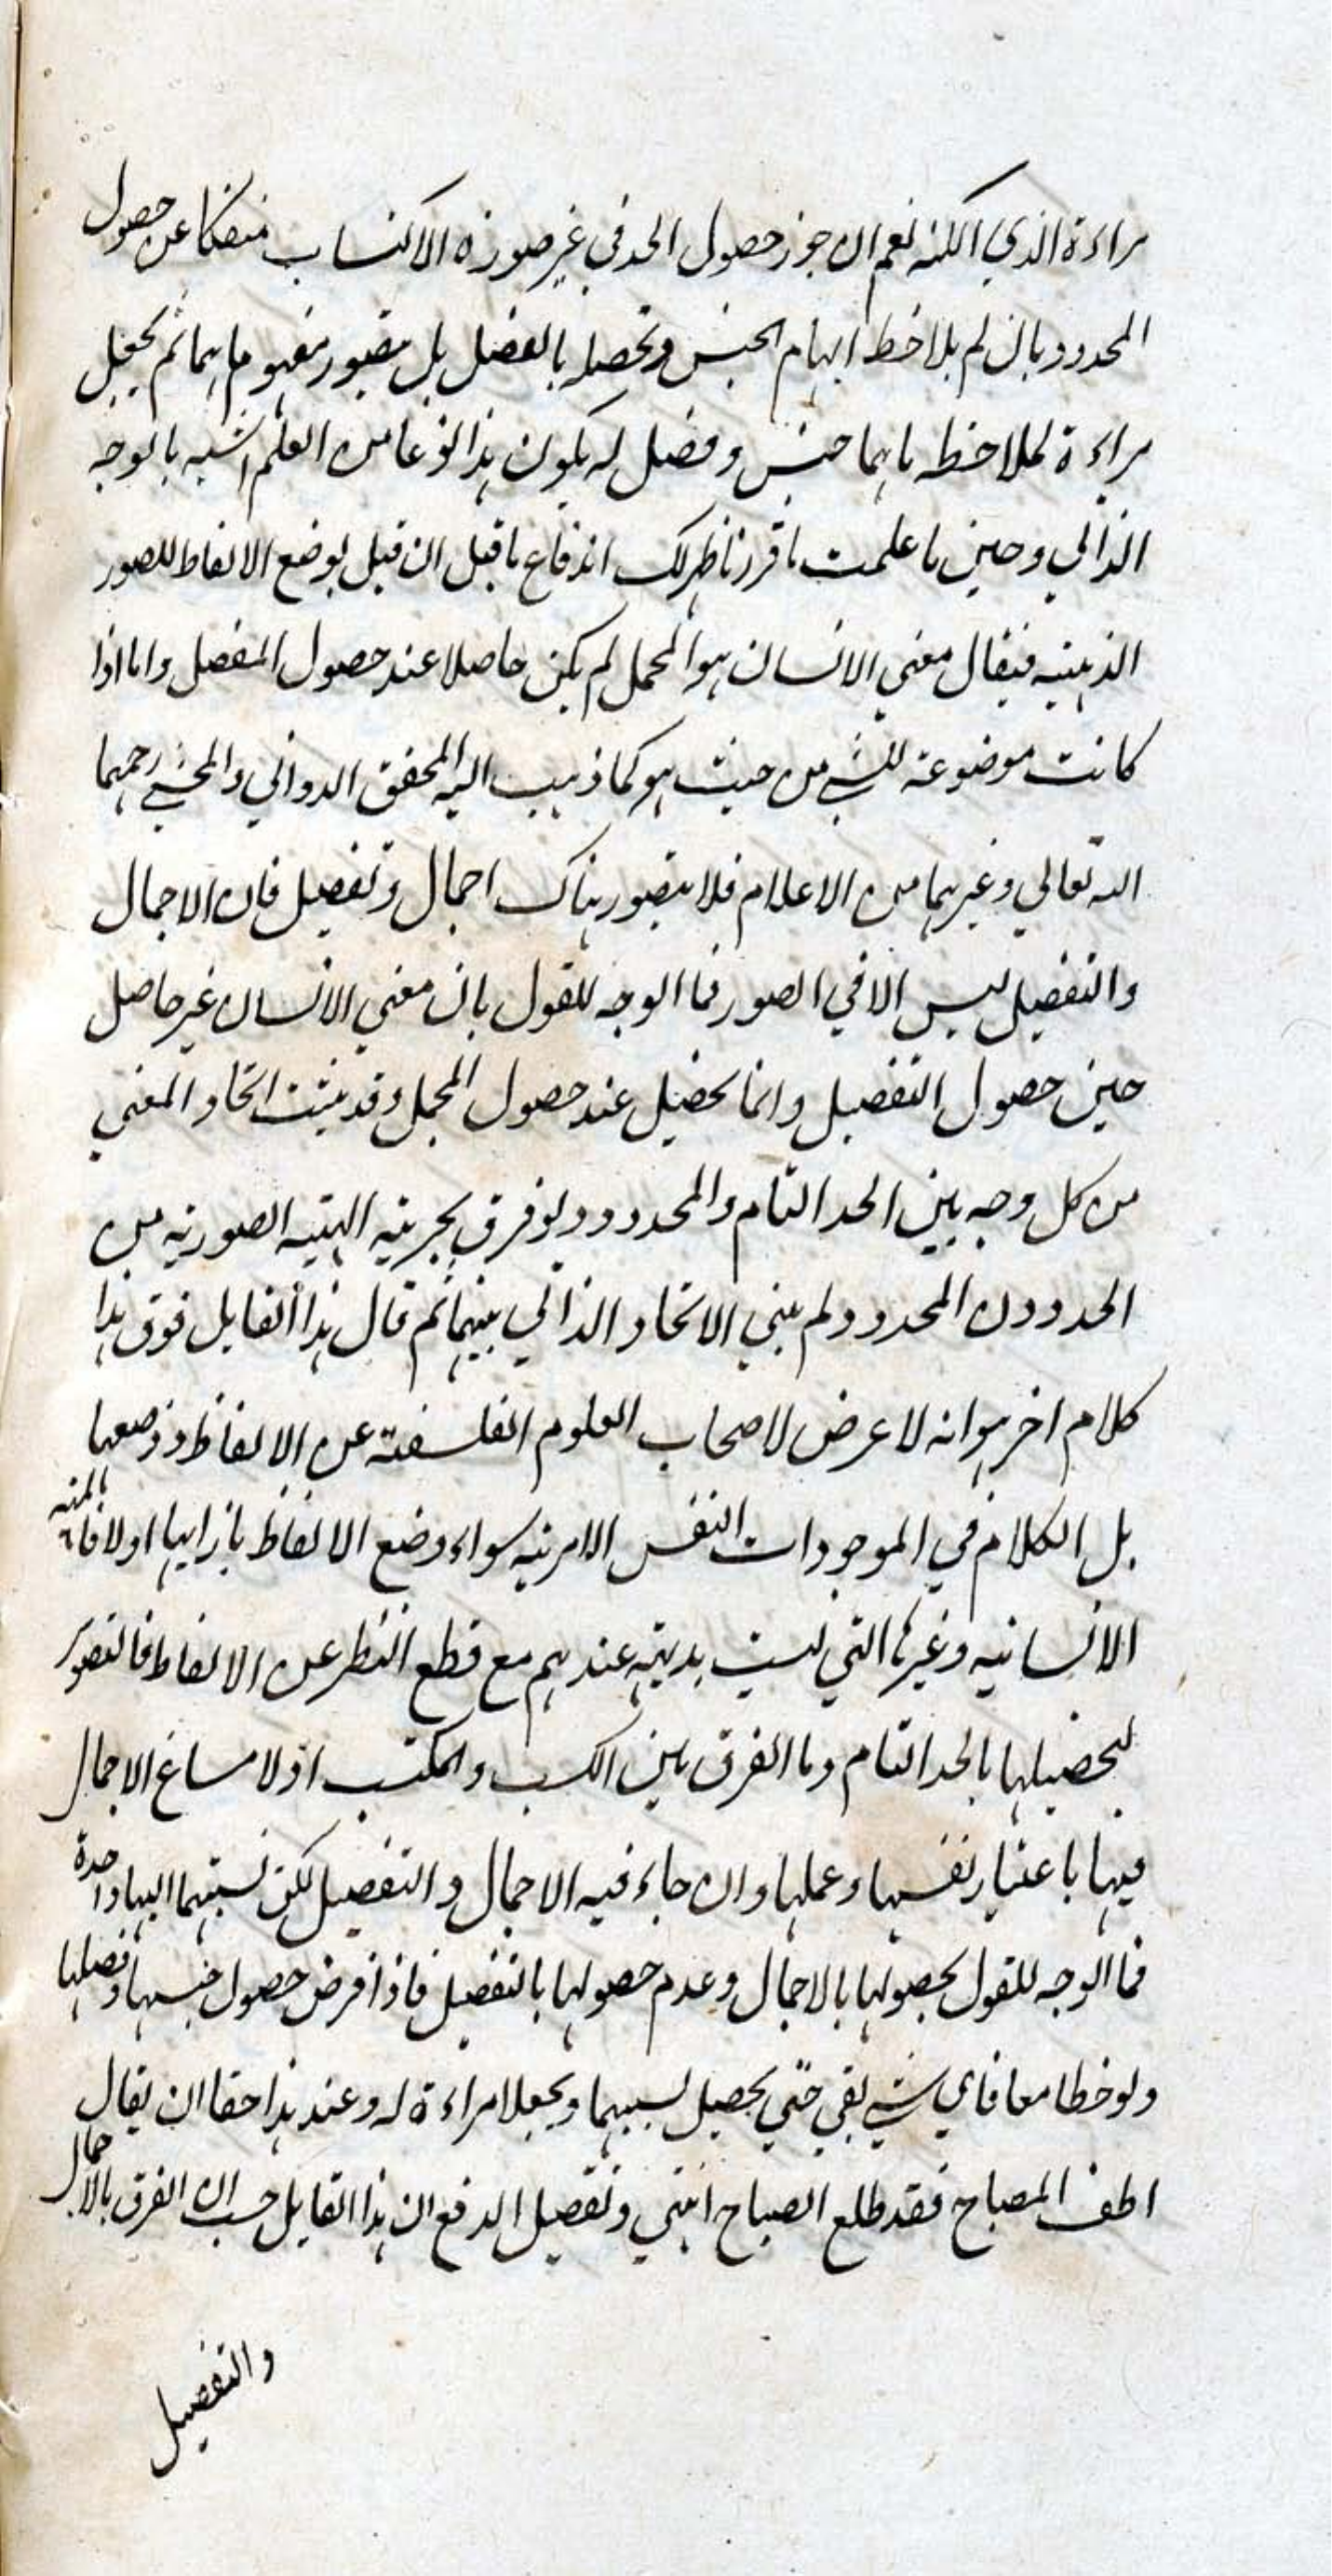 مراءة الذي الكنه نعم ان جوز حصول الحد في غير صورة الاكتساب منفكا عن حصول
المحدود بان لم يلاحظ ابهام الجنس وتحصله بالفصل بل يتصور مفهوماهما ثم يجعل
مراءة لملاحظه ما هما جنس وفصل له يكون هذا نوعا من العلم اشبه بالوجه
الذاتي وحين ما علمت ما قررنا ظهر لك اندفاع ما قيل ان قيل بوضع الالفاظ للصور
الذهنيه فيقال معني الانسان هو المجمل لم يكن حاصلا عند حصول المفصل واما اذا
كانت موضوعة للشي من حيث هو كما ذهب اليه المحقق الدواني والمحشي رحمهما
الله تعالي وغيرهما من الاعلام فلا يتصور هناك اجمال وتفصيل فان الاجمال
والتفصيل ليس الا في الصور فما الوجه للقول بان معني الانسان غير حاصل
حين حصول التفصيل وانما يحصل عند حصول المجمل وقد يثبت اتحاد المعني
من كل وجه بين الحد التام والمحدود ولو فرق بجزئية الهيئيه الصوريه من
الحد دون المحدود لم يبقي الاتحاد الذاتي بينهما ثم قال هذا القايل فوق هذا
كلام اخر هو انه لا غرض لاصحاب العلوم الفلسفته عن الالفاظ ووضعها
بل الكلام في الموجودات النفس الامريه سواء وضع الالفاظ بازايها اولا فالمهيه
الانسانيه وغيرها التي ليست بديهية عندهم مع قطع النظر عن الالفاظ فالتصور
لتحصيلها بالحد التام وما الفرق بين الكسب والمكتسب اذ لا مساغ الاجمال
فيها باعتبار نفسها وعملها وان جاء فيه الاجمال والتفصيل لكن نسبتهما اليها واحدة
فما الوجه للقول بحصولها بالاجمال وعدم حصولها بالتفصيل فاذا فرض حصول جنسها وفصلها
ولوخطا معا فاي شي بقي حتي يحصل بسببهما ويجعلا مراءة له وعند هذا حقا ان يقال
اطف المصباح فقد طلع الصباح انتهي وتفصيل الدفع ان هذا القايل حسب ان الفرق بالاجمال
والتفصيل